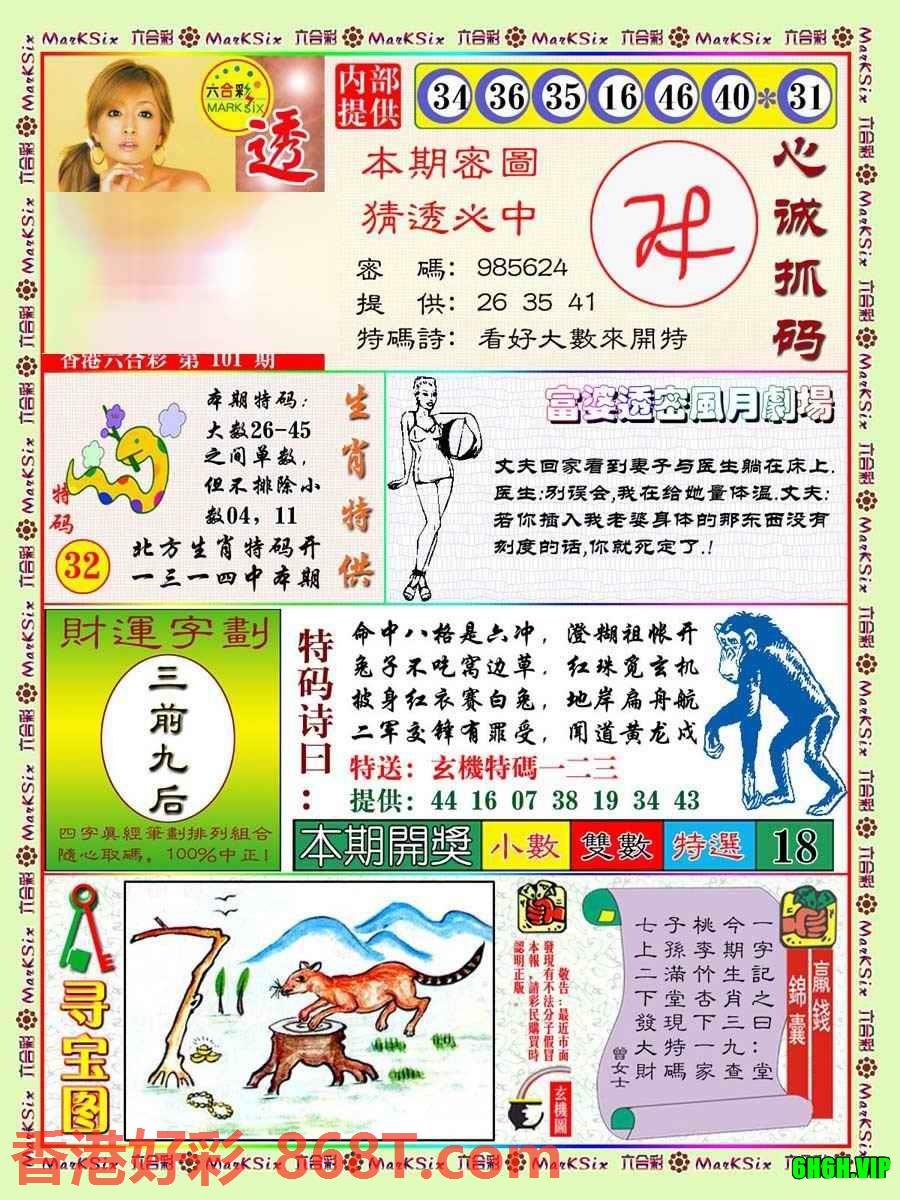 MarKSix 六合彩 MarKSix 六合彩 MarKSix 六合彩 MarKSix 六合彩 MarKSix 六合彩
六合彩
MARK SIX
透
香港六合彩 第 101 期
内部
提供
34 36 35 16 46 40 * 31
本期密圖
猜透必中
密 碼: 985624
提 供: 26 35 41
特碼詩: 看好大數來開特
心诚抓码
本期特码:
大数26-45
之间单数,
但不排除小
数04, 11
北方生肖特码开
一三一四中本期
特码
32
生肖特供
富婆透密風月劇場
丈夫回家看到妻子与医生躺在床上.
医生:别误会,我在给她量体温.丈夫:
若你插入我老婆身体的那东西没有
刻度的话,你就死定了.!
財運字劃
三前九后
四字真經筆劃排列組合
隨心取碼。100%中正!
特码诗曰:
命中八格是六冲, 澄糊祖帐开
兔子不吃窝边草, 红珠觅玄机
披身红衣赛白兔, 地岸扁舟航
二军交锋有罪受, 闻道黄龙戍
特送: 玄機特碼一二三
提供: 44 16 07 38 19 34 43
本期開獎 小數 雙數 特選 18
寻宝图
敬告:最近市面
發現有不法分子假冒
本報,請彩民購買時
認明正版。
玄機圖
一字記之曰:堂
今期生肖三九查
桃李竹杏下一家
子孫滿堂現特碼
七上二下發大財
曾女士
贏錢
錦囊
香港好彩.868T.com
MarKSix 六合彩 MarKSix 六合彩 MarKSix 六合彩 MarKSix 六合彩 MarKSix
6H6H.VIP